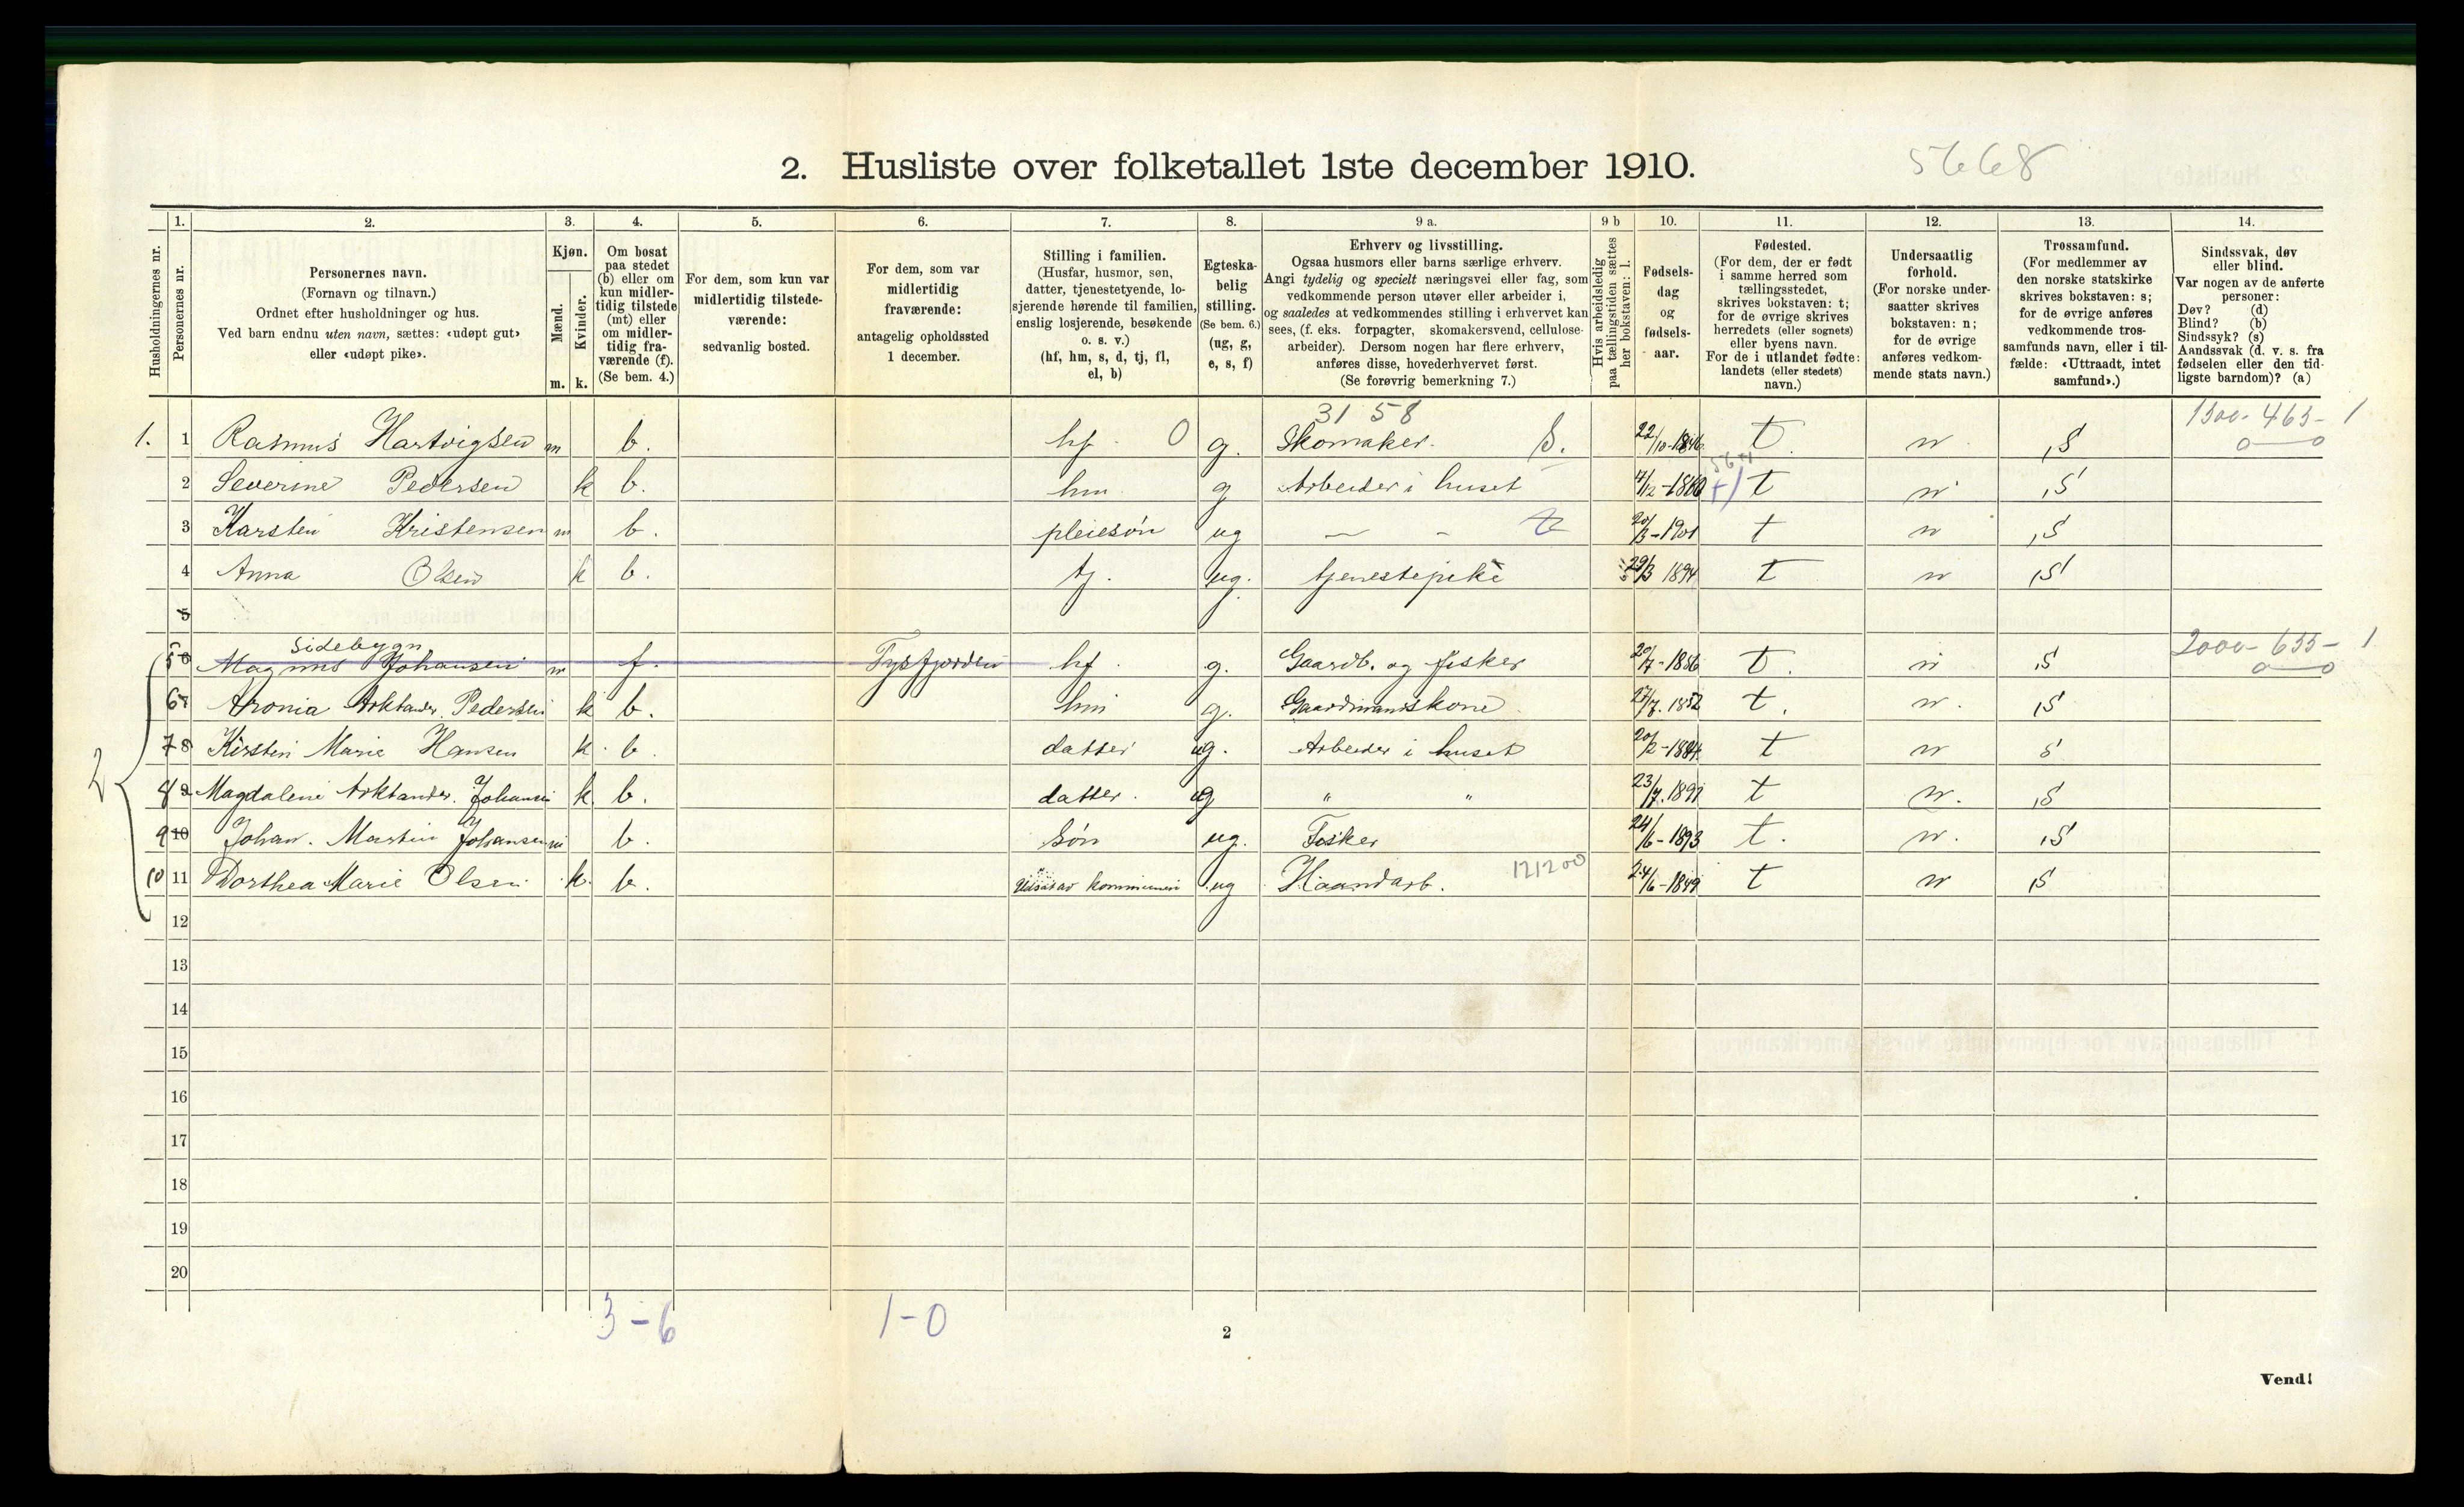 2. Husliste over folketallet 1ste december 1910.
5668
Husholdningernes nr.
1.
Personernes nr.
2.
Personernes navn.
(Fornavn og tilnavn.)
Ordnet efter husholdninger og hus.
Ved barn endnu uten navn, sættes: «udøpt gut»
eller «udøpt pike».
3.
Kjøn.
Mænd.
Kvinder.
m. k.
4.
Om bosat
paa stedet
(b) eller om
kun midler-
tidig tilstede
(mt) eller
om midler-
tidig fra-
værende (f).
(Se bem. 4.)
5.
For dem, som kun var
midlertidig tilstede-
værende:
sedvanlig bosted.
6.
For dem, som var
midlertidig
fraværende:
antagelig opholdssted
1 december.
7.
Stilling i familien.
(Husfar, husmor, søn,
datter, tjenestetyende, lo-
sjerende hørende til familien,
enslig losjerende, besøkende
o. s. v.)
(hf, hm, s, d, tj, fl,
el, b)
8.
Egteska-
belig
stilling.
(Se bem. 6.)
(ug, g,
e, s, f)
9 a.
Erhverv og livsstilling.
Ogsaa husmors eller barns særlige erhverv.
Angi tydelig og specielt næringsvei eller fag, som
vedkommende person utøver eller arbeider i,
og saaledes at vedkommendes stilling i erhvervet kan
sees, (f. eks. forpagter, skomakersvend, cellulose-
arbeider). Dersom nogen har flere erhverv,
anføres disse, hovederhvervet først.
(Se forøvrig bemerkning 7.)
9 b
Hvis arbeidsledig
paa tællingstiden sættes
her bokstaven: l.
10.
Fødsels-
dag
og
fødsels-
aar.
11.
Fødested.
(For dem, der er født
i samme herred som
tællingsstedet,
skrives bokstaven: t;
for de øvrige skrives
herredets (eller sognets)
eller byens navn.
For de i utlandet fødte:
landets (eller stedets)
navn.)
12.
Undersaatlig
forhold.
(For norske under-
saatter skrives
bokstaven: n;
for de øvrige
anføres vedkom-
mende stats navn.)
13.
Trossamfund.
(For medlemmer av
den norske statskirke
skrives bokstaven: s;
for de øvrige anføres
vedkommende tros-
samfunds navn, eller i til-
fælde: «Uttraadt, intet
samfund».)
14.
Sindssvak, døv
eller blind.
Var nogen av de anførte
personer:
Døv? (d)
Blind? (b)
Sindssyk? (s)
Aandssvak (d. v. s. fra
fødselen eller den tid-
ligste barndom)? (a)
3158 1300-463-1
1. 1 Rasmus Hartvigsen m b. hf. 0 g. Skomaker. S. 22/10-1846 t. n. S
2 Severine Pedersen k b. hm. g Arbeider i huset t n S
3 Karsten Kristensen m b. pleiesøn ug — - 20/3-1901 t n S
4 Anna Olsen k b. tj. ug. tjenestepike 29/3 1894 t n S
5
Sidebygn 2000-655-1
5 6 Magnus Johansen m f. Tysfjorden hf. g. Gaardb. og fisker t. n S
6 7 Aronia Arktander Pedersen k b. hm g. Gaardmandskone 27/7. 1852 t. n. S
7 8 Kirstin Marie Hansen k. b. datter ug. Arbeider i huset 20/2-1884 t n s
8 9 Magdalene Arktander. Johansen k. b. datter. ug " " 23/7.1891 t n. S
9 10 Johan. Martin Johansen m b. søn ug. Fisker 24/6-1893 t. n. S
10 11 Dorthea Marie Olsen k. b. Utsat av kommunen ug Haandarb. 121200 24/6-1849 t n S
2
12
13
14
15
16
17
18
19
20
3-6 1-0
2
Vend!